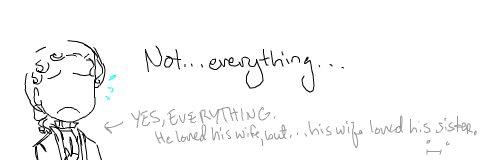 Not...everything...
YES, EVERYTHING.
He loved his wife, but... his wife loved his sister.